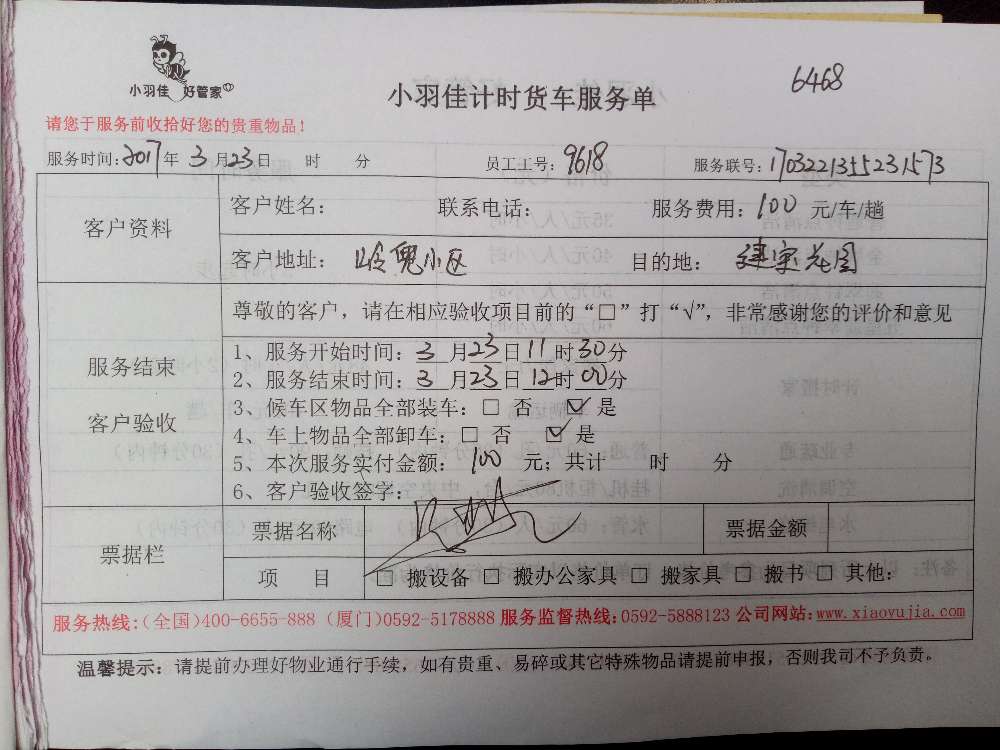 小羽佳 好管家
小羽佳计时货车服务单
6468
请您于服务前收拾好您的贵重物品！
服务时间：2017年 3 月23日 时 分 员工工号：9618 服务联号：1703221355231573
客户资料
客户姓名： 联系电话： 服务费用：100 元/车/趟
客户地址： 小区 目的地： 建宝花园
尊敬的客户，请在相应验收项目前的“□”打“√”，非常感谢您的评价和意见
服务结束
客户验收
1、服务开始时间：3 月23日11时30分
2、服务结束时间：3 月23日12时00分
3、候车区物品全部装车：□ 否 ☑ 是
4、车上物品全部卸车：□ 否 ☑ 是
5、本次服务实付金额： 100 元；共计 时 分
6、客户验收签字：
票据栏
票据名称 票据金额
项 目 □ 搬设备 □ 搬办公家具 □ 搬家具 □ 搬书 □ 其他：
服务热线：(全国)400-6655-888 (厦门)0592-5178888 服务监督热线：0592-5888123 公司网站：www.xiaoyujia.com
温馨提示：请提前办理好物业通行手续，如有贵重、易碎或其它特殊物品请提前申报，否则我司不予负责。